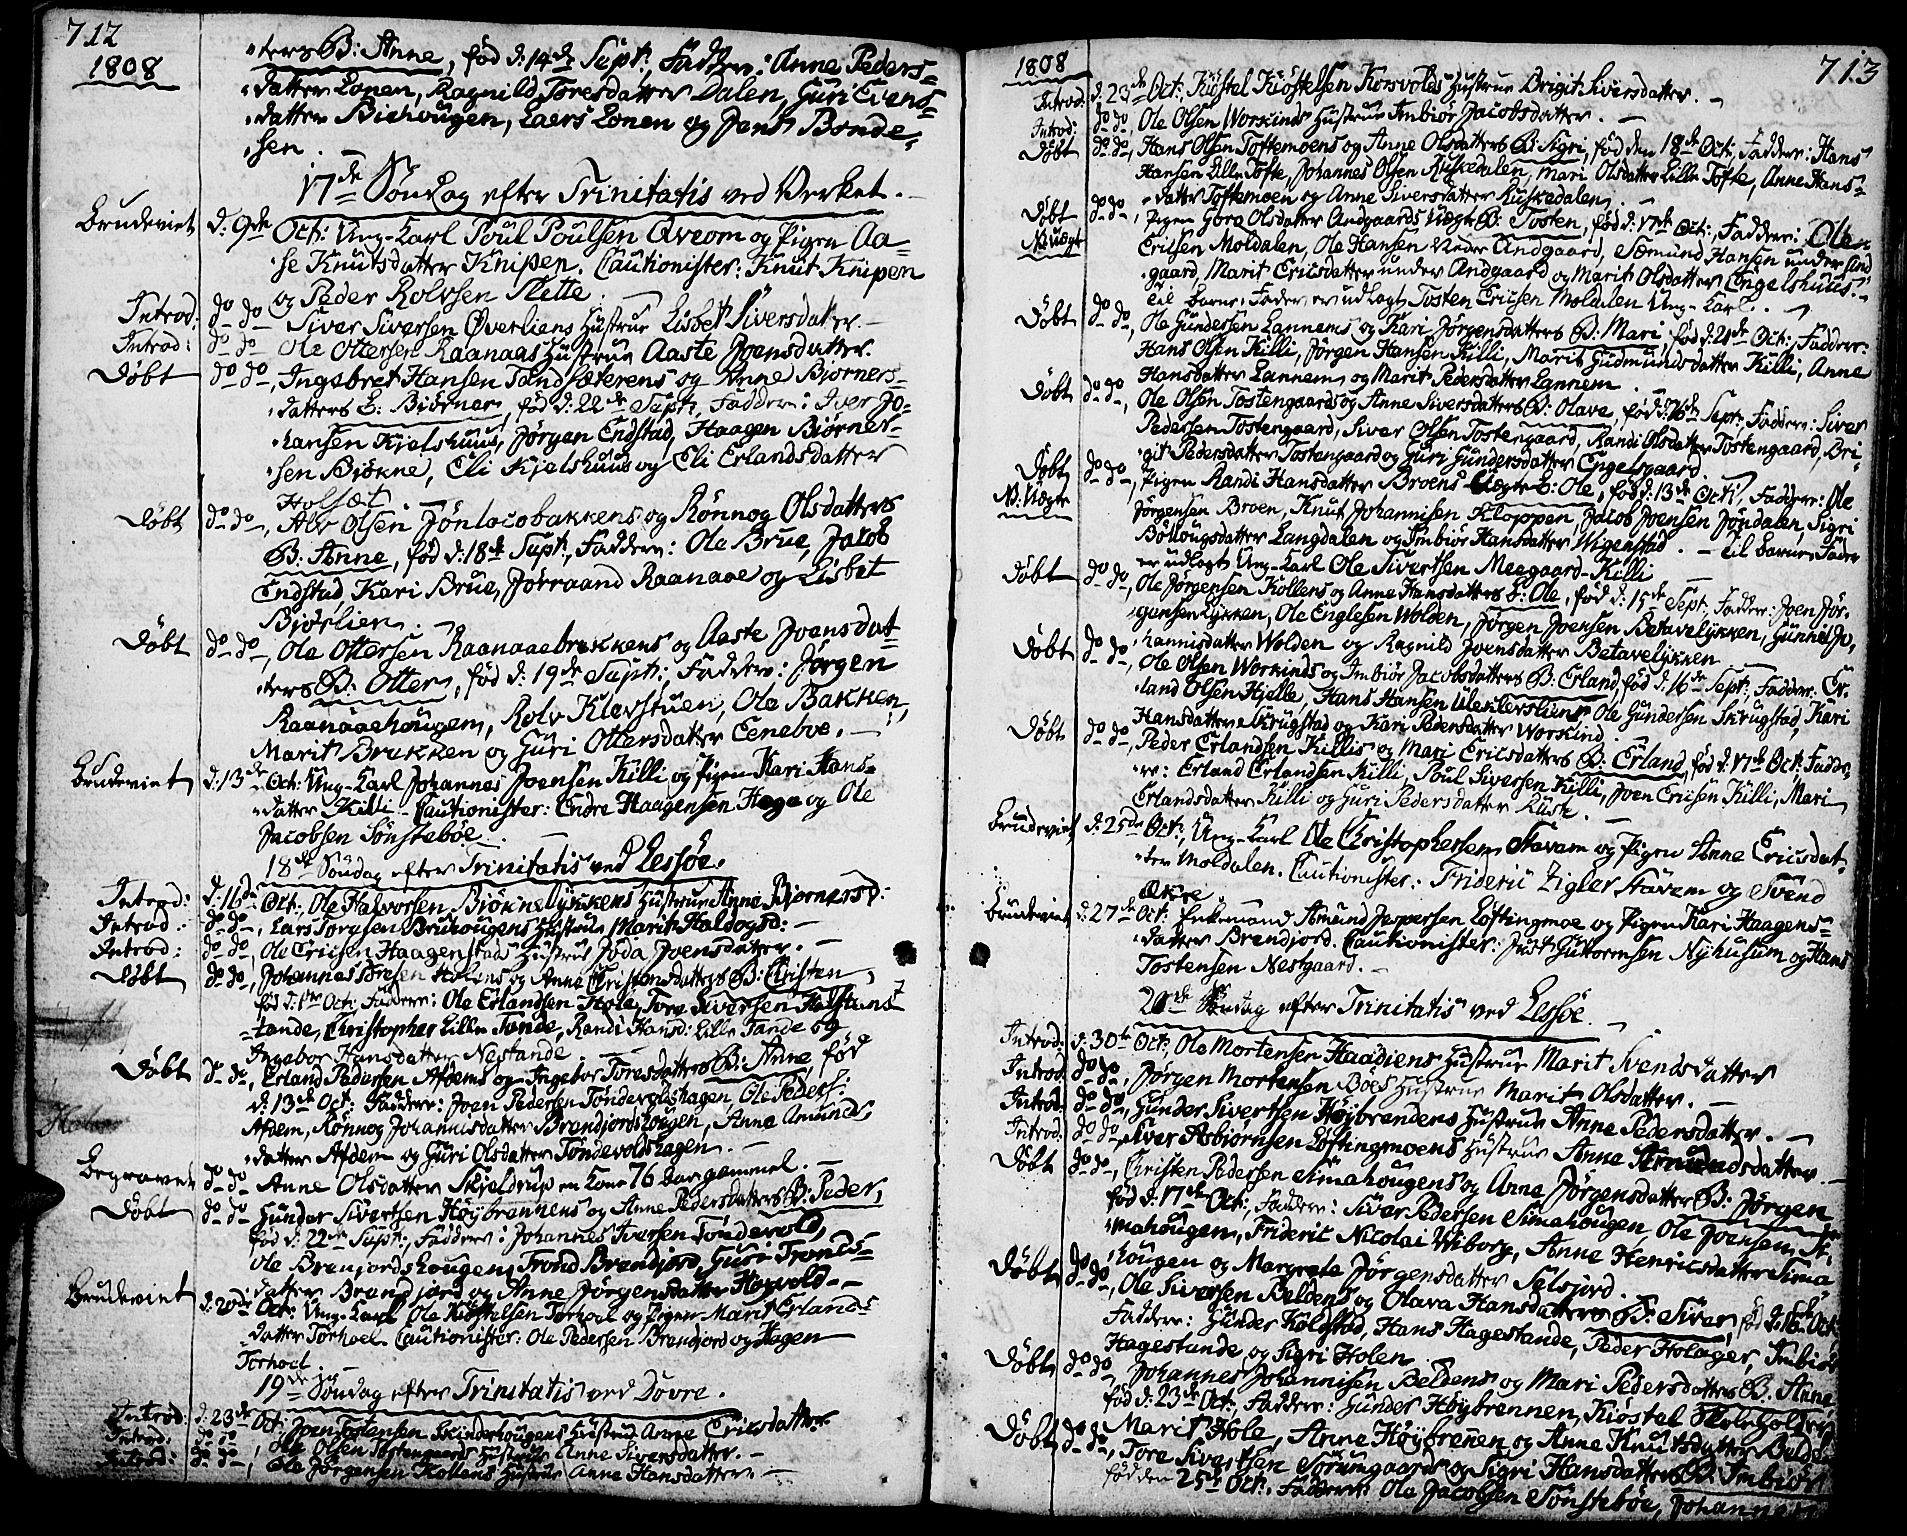 712
1808
"ters B: Anne, fød d: 14de Sept: Faddere: Anne Peders=
"datter Lonen, Ragnild Toresdatter Dalen, Guri Evens=
"datter Biehougen, Laers Lonen og Jens Bonde,
"sen.
17de Søndag efter Trinitatis ved Verket.
Brudeviet d: 9de Oct: Ung-Karl Poul Poulsen Qveom og Pigen Aa=
"se Knutsdatter Knipen. Cautionister: Knut Knipen
og Peder Rolvsen Slette.
Introd: do do Siver Siversen Øverliens Hustrue Lisbet Siversdatter.
Introd: do do Ole Ottersen Raanaas Hustrue Aaste Joensdatter.
Døbt do do, Ingebret Hansen Tandsæterens og Anne Bjørners=
"datters B: Biørner, fød d: 22de Sept, Faddere: Iver Jo=
"hansen Kjelshuus, Jørgen Endstad, Haagen Biørner=
"sen Biøkne, Eli Kjelshuus og Eli Erlandsdatter
Holsæt.
Døbt do do, Alv Olsen Jønlocobakkens og Rønnog Olsdatters
B: Anne, fød d: 18de Sept, Faddere: Ole Brue, Jacob
Endstad, Kari Brue, Jørraand Raanaae og Lisbet
Bjørlien.
Døbt do do, Ole Ottersen Raanaaebrekkens og Aaste Joensdat=
"ters B: Otter, fød d: 19de Sept; Faddere: Jørgen
Raanaaehougen, Rolv Klevstuen, Ole Bakken,
Marit Brekken og Guri Ottersdatter Eeneboe.
Brudeviet d: 13de Oct: Ung-Karl Johannes Joensen Killi og Pigen Kari Hans=
"datter Killi. Cautionister: Endre Haagensen Hage og Ole
Jacobsen Sønstebøe.
18de Søndag efter Trinitatis ved Lessøe.
Introd: d: 16de Oct: Ole Halvorsen Biøknelykkens Hustrue Anne Bjørnersd:
Introd: do do, Lars Torgsen Bruhougens Hustrue Marit Haldogsd:
Introd: do do, Ole Ericsen Haagenstads Hustrue Jøda Joensdatter.
Døbt do do, Johannes Toresen Holens og Anne Christensdatters B: Christen,
fød d: 1ste Oct: Faddere: Ole Erlandsen Hole, Tore Siversen
"tande, Christopher Lille Tande, Randi Hansd: Lille Tande og
Ingebor Hansdatter Nestande.
Døbt do do, Erland Pedersen Afdems og Ingebor Toresdatters B: Anne, fød
d: 13de Oct: Faddere: Joen Pedersen Tøndevoldshagen, Ole Peders:
Afdem, Rønnog Johannisdatter Brendjordshougen, Anne Amunds
"datter Afdem og Guri Olsdatter Tøndevoldshagen.
Begravet do do Anne Olsdatter Skjeldrup en Kone 76 Aar gammel.
Døbt do do Gunder Sivertsen Høybrennens og Anne Pedersdatters B: Peder,
fød d: 22de Sept:, Faddere: Johannes Iversen Tøndevold,
Ole Brenjordshougen, Trond Brendjord, Guri Tronds=
"datter Brendjord og Anne Jørgensdatter Hogvold.
Brudeviet d: 20de Oct: Ung-Karl Ole Kiøstelsen Torhoel og Pigen Marit Erlands=
"datter Torhoel. Cautionister: Ole Pedersen Brenjord og Hagen
Torhoel.
19de Søndag efter Trinitatis ved Dovre.
Introd: d: 23de Oct: Joen Tostensen Skinderhougens Hustrue Anne Ericsdatter
Introd: do do, Ole Olsen Tostengaards Hustrue Anne Siversdatter.
Introd: do do, Ole Jørgensen Kollens Hustrue Anne Hansdatter.
1808
713
Introd: d: 23de Oct: Kiøstel Kiøstelsen Korsvolds Hustrue Brigit Siversdatter.
Introd: do do, Ole Olsen Workinds Hustrue Imbiør Jacobsdatter.
Døbt do do, Hans Olsen Toftemoens og Anne Olsdatters B: Sigri, fød den 18de Oct:, Faddere: Hans
Hansen Lille Tofte, Johannes Olsen Ruskedalen, Mari Olsdatter Lille Tofte, Anne Hans=
"datter Toftemoen og Anne Siversdatter Ruskedalen.
Døbt do do, Pigen Goro Olsdatter Andgaards Uægte B: Tosten, fød d: 17de Oct:, Faddere: Ole
N: Uægte Ericsen Moldalen, Ole Hansen under Andgaard, Sæmund Hansen under And
"gaard, Marit Ericsdatter under Andgaard og Marit Olsdatter Engelshuus.
til Barne-Fader er udlagt Tosten Ericsen Moldalen Ung-Karl.
Døbt do do, Ole Gundersen Lannems og Kari Jørgensdatters B: Mari, fød d: 21de Oct:, Faddere:
Hans Olsen Killi, Jørgen Hansen Killi, Marit Gudmundsdatter Killi, Anne
Hansdatter Lannem og Marit Pedersdatter Lannem.
Døbt do do, Ole Olsen Tostengaards og Anne Siversdatters B: Olave, fød d: 16de Sept: Faddere: Siver
Pedersen Tostengaard, Siver Olsen Tostengaard, Randi Olsdatter Tostengaard, Bri=
"git Pedersdatter Tostengaard og Guri Gundersdatter Engelsgaard
Døbt do do, Pigen Randi Hansdatter Broens Uægte B: Ole, fød d: 13de Oct:, Faddere: Ole
N: Uægte Jørgensen Broen, Knut Johannisen Kloppen, Jacob Joensen Jøndalen, Sigri
Bøllougsdatter Langdalen og Imbiør Hansdatter Wigenstad. - til Barne-Fader
er udlagt Ung-Karl Ole Sivertsen Meegaard-Killi
Døbt do do, Ole Jørgensen Kollens og Anne Hansdatters B: Ole, fød d: 15de Sept, Faddere: Joen Jør=
"gensen Lykken, Ole Englesen Wolden, Jørgen Joensen Betavelykken, Gunhild Jo,
"hannisdatter Wolden og Ragnild Joensdatter Betavelykken
Døbt do do, Ole Olsen Workinds og Imbiør Jacobsdatters B: Erland, fød d: 16de Sept, Faddere: Er=
"land Olsen Hjelle, Hans Hansen Ulekleivsliens, Ole Gundersen Skrugstad, Kari
Hansdatter Skrugstad og Kari Pedersdatter Workind.
Døbt do do, Peder Erlandsen Killis og Mari Ericsdatters B: Erland, fød d: 17de Oct: Fadde,
"re: Erland Erlandsen Killi, Poul Siversen Killi, Joen Ericsen Killi, Mari
Erlandsdatter Killi og Guri Pedersdatter Rusk.
Brudeviet d: 25de Oct:, Ung-Karl Ole Christophersen Stavem og Pigen Anne Ericsdat=
"ter Moldalen. Cautionister: Frideric Zigler Stavem og Svend
Økre.
Brudeviet d: 27de Oct: Enkemand Amund Jespersen Løftingmoe og Pigen Kari Haagens=
"datter Brendjord. Cautionister: Just Guttormsen Nyhusum og Hans
Tostensen Nestgaard.
20de Søndag efter Trinitatis ved Lessøe.
Introd: d: 30te Oct:, Ole Mortensen Haadiens Hustrue Marit Svendsdatter
Introd: do do, Jørgen Mortensen Boes Hustrue Marit Olsdatter.
Introd: do do, Gunder Sivertsen Høybrendens Hustrue Anne Pedersdatter.
Introd: do do, Siver Asbiørnsen Løftingmoens Hustrue Anne Amundsdatter.
Døbt do do, Christen Pedersen Simahougens og Anne Jørgensdatters B: Jørgen
fød d: 17de Oct:, Faddere: Siver Pedersen Simahougen, Ole Joensen Si=
"mahougen, Frideric Nicolai Wiborg, Anne Henricsdatter Sima
"hougen og Margrete Jørgensdatter Selsjord.
Døbt do do, Ole Siversen Beldens og Olava Hansdatters B: Siver, fød d: 16de Oct:
Faddere: Gunder Kolstad, Hans Hagestande, Peder Holager, Imbiør
Hagestande og Sigri Holen
Døbt do do, Johannes Johannisen Beldens og Mari Pedersdatters B: Anne
fød d: 23de Oct:, Faddere: Gunder Høybrennen, Kiøstel
Marit Hole, Anne Høybrenen og Anne Knutsdatter Belden
Døbt do do, Tore Sivertsen Sørumgaards og Sigri Hansdatters B: Imbiør
fød den 25de Oct:, Faddere: Ole Jacobsen Sønstebøe, Johannes